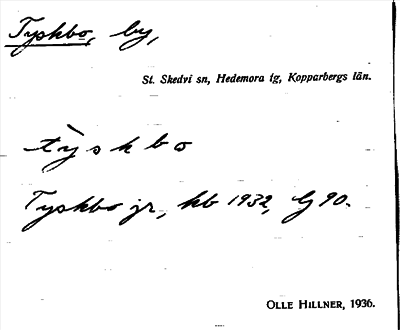 Tyskbo, by,
St. Skedvi sn, Hedemora tg, Kopparbergs län.
tỳskbo
Tyskbo jr, kb 1932, G 90.
OLLE HILLNER, 1936.